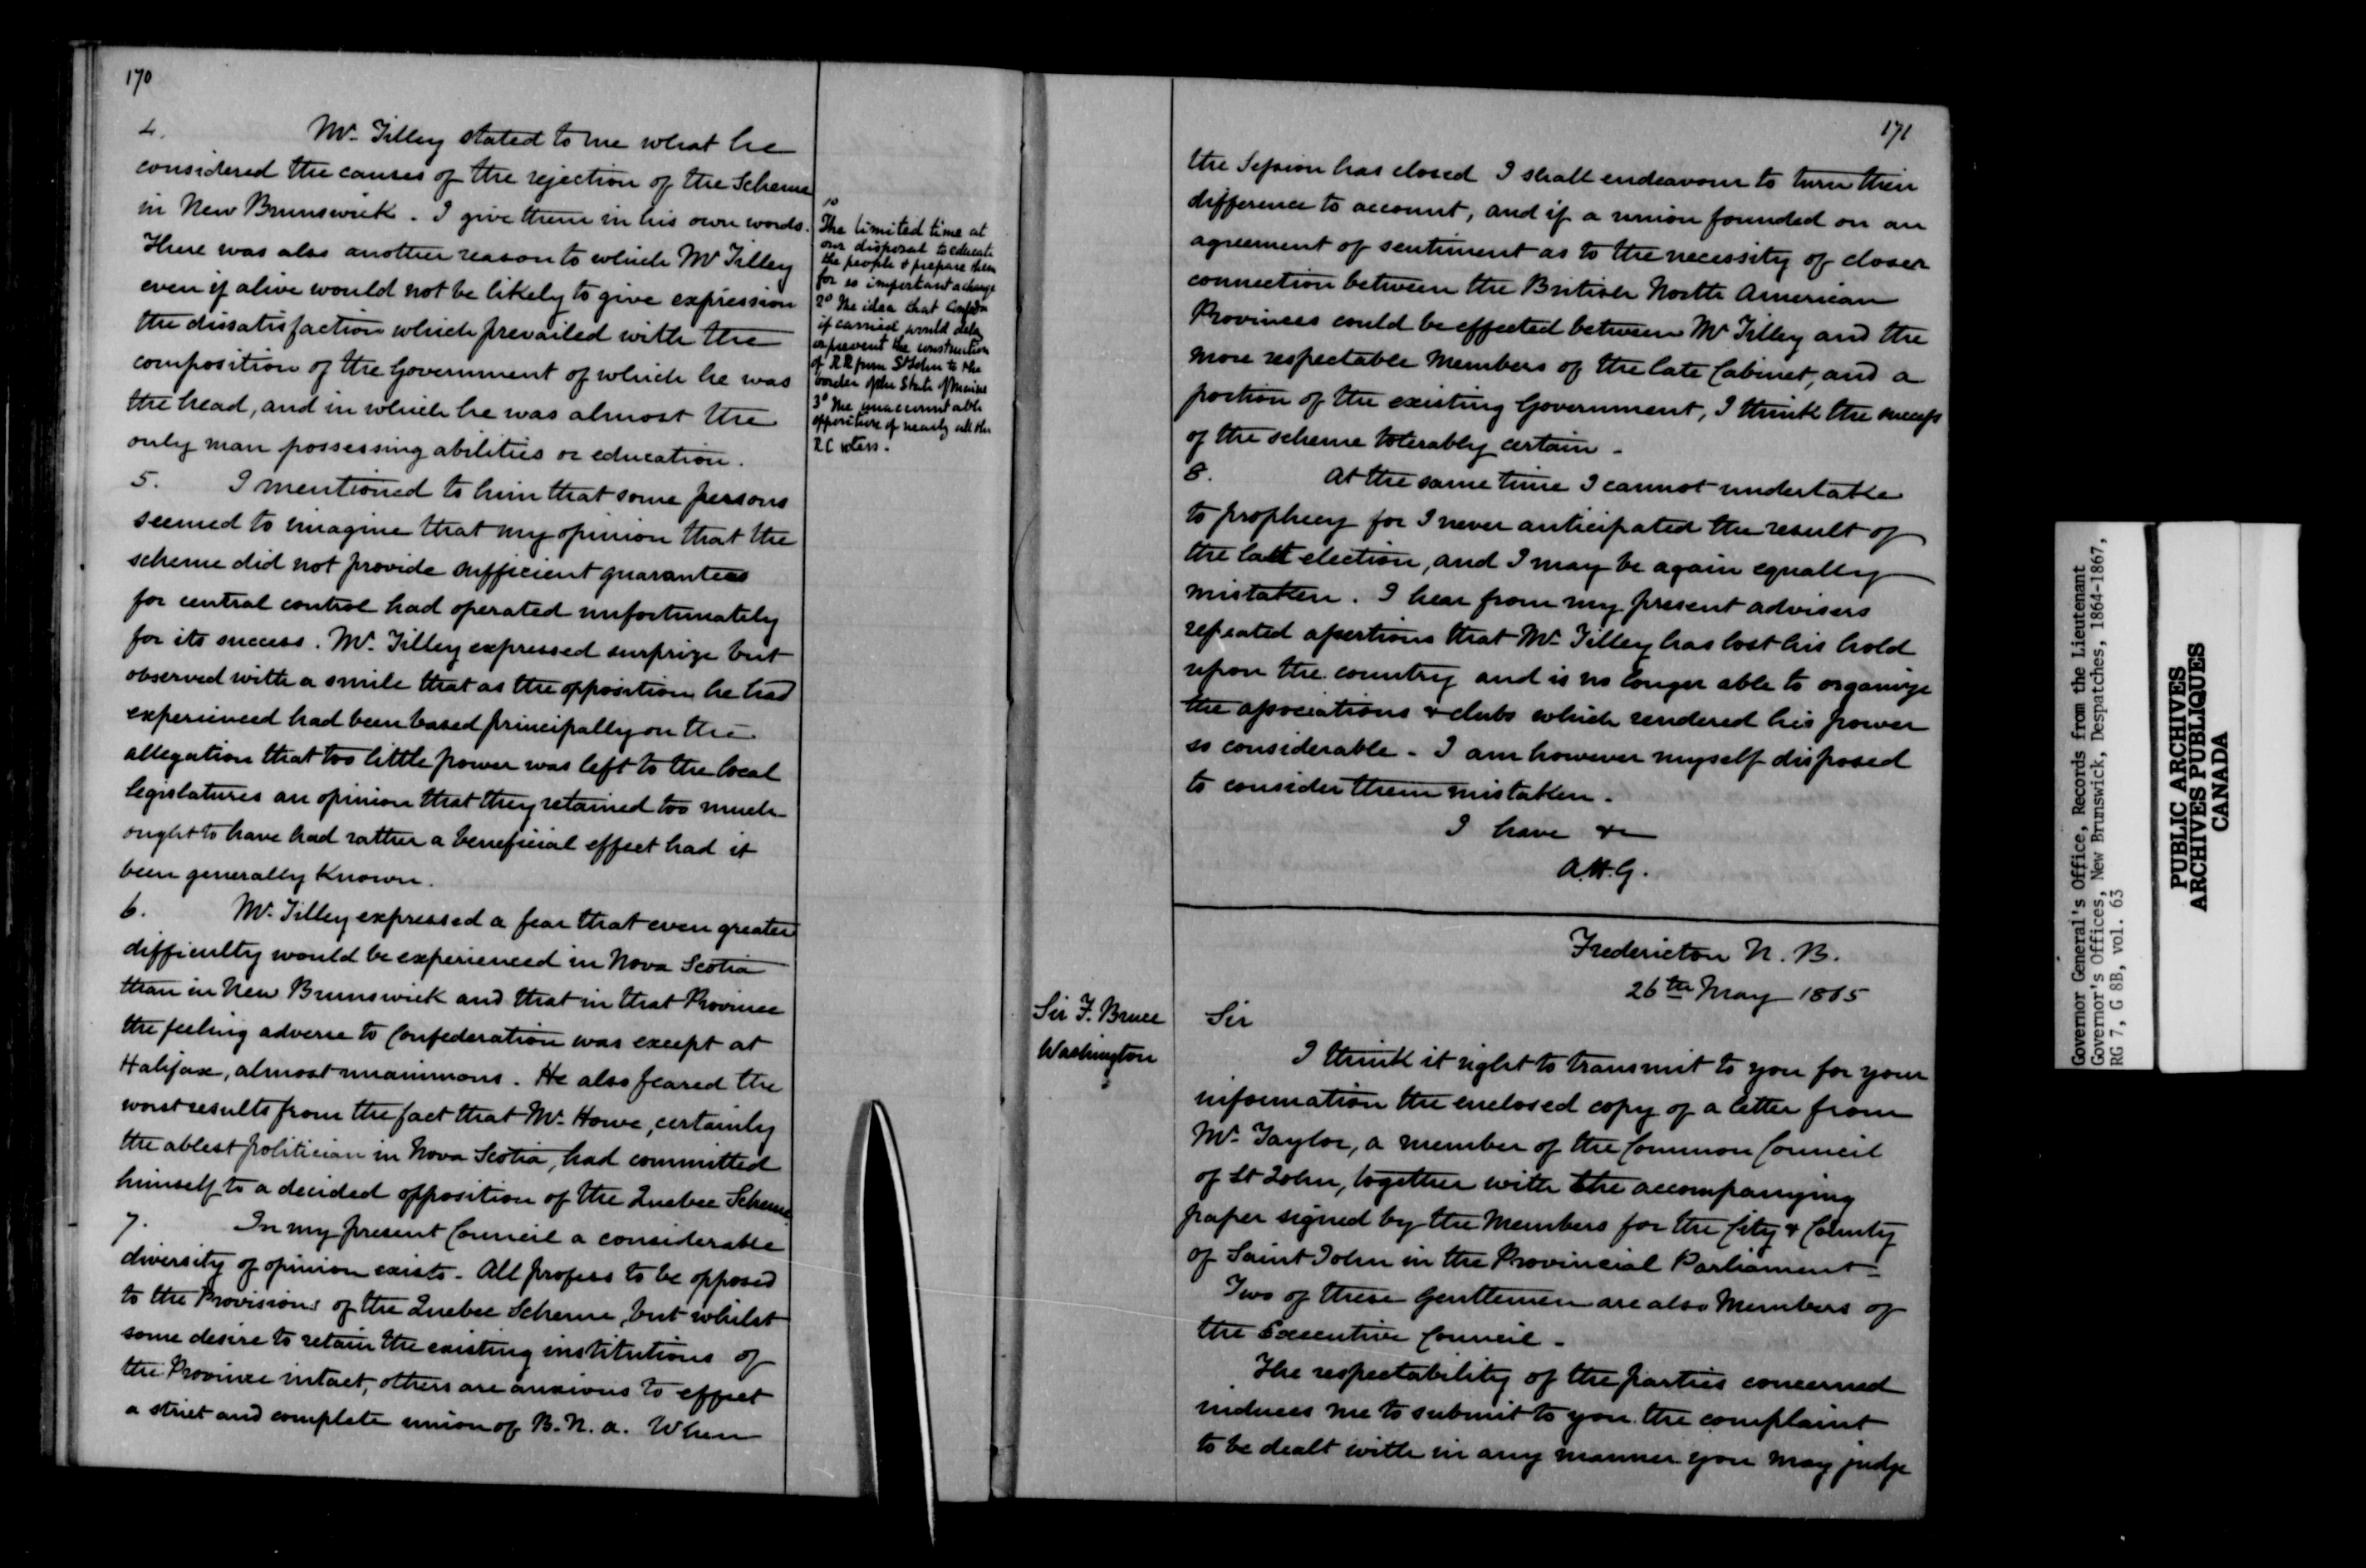 170
4. Mr. Tilley stated to me what he
considered the causes of the rejection of the Scheme
in New Brunswick. I give them in his own words.
There was also another reason to which Mr Tilley
even if alive would not be likely to give expression
the dissatisfaction which prevailed with the
composition of the Government of which he was
the head, and in which he was almost the
only man possessing abilities or education.
1o
The limited time at
our disposal to educate
the people & prepare them
for so important a change
2o The idea that Confedn
if carried would delay
or prevent the construction
of R R from St John to the
border of the State of Maine
3o The unaccountable
opposition of nearly all the
R C voters.
5. I mentioned to him that some persons
seemed to imagine that my opinion that the
scheme did not provide sufficient guarantees
for central control had operated unfortunately
for its success. Mr. Tilley expressed surprize but
observed with a smile that as the opposition he had
experienced had been based principally on the
allegation that too little power was left to the local
legislatures an opinion that they retained too much
ought to have had rather a beneficial effect had it
been generally known.
6. Mr. Tilley expressed a fear that even greater
difficulty would be experienced in Nova Scotia
than in New Brunswick and that in that Province
the feeling adverse to Confederation was except at
Halifax, almost unanimous. He also feared the
worst results from the fact that Mr. Howe, certainly
the ablest politician in Nova Scotia, had committed
himself to a decided opposition of the Quebec Scheme
7. In my present Council a considerable
diversity of opinion exists. All profess to be opposed
to the Provisions of the Quebec Scheme, but whilst
some desire to retain the existing institutions of
the Province intact, others are anxious to effect
a strict and complete union of B. N. A. When
171
the Session has closed I shall endeavour to turn their
difference to account, and if a union founded on an
agreement of sentiment as to the necessity of closer
connection between the British North American
Provinces could be effected between Mr Tilley and the
more respectable Members of the late Cabinet, and a
portion of the existing Government, I think the success
of the scheme tolerably certain.
8. At the same time I cannot undertake
to prophecy for I never anticipated the result of
the last election, and I may be again equally
mistaken. I hear from my present advisers
repeated assertions that Mr. Tilley has lost his hold
upon the country and is no longer able to organize
the associations & clubs which rendered his power
so considerable. I am however myself disposed
to consider them mistaken.
I have &c
A.H.G.
Fredericton N. B.
26th May 1865
Sir F. Bruce
Washington
Sir
I think it right to transmit to you for your
information the enclosed copy of a letter from
Mr. Taylor, a member of the Common Council
of St John, together with the accompanying
paper signed by the Members for the City & County
of Saint John in the Provincial Parliament.
Two of these Gentlemen are also Members of
the Executive Council.
The respectability of the parties concerned
induces me to submit to you the complaint
to be dealt with in any manner you may judge
Governor General's Office, Records from the Lieutenant
Governor's Offices, New Brunswick, Despatches, 1864-1867,
RG 7, G 8B, vol. 63
PUBLIC ARCHIVES
ARCHIVES PUBLIQUES
CANADA